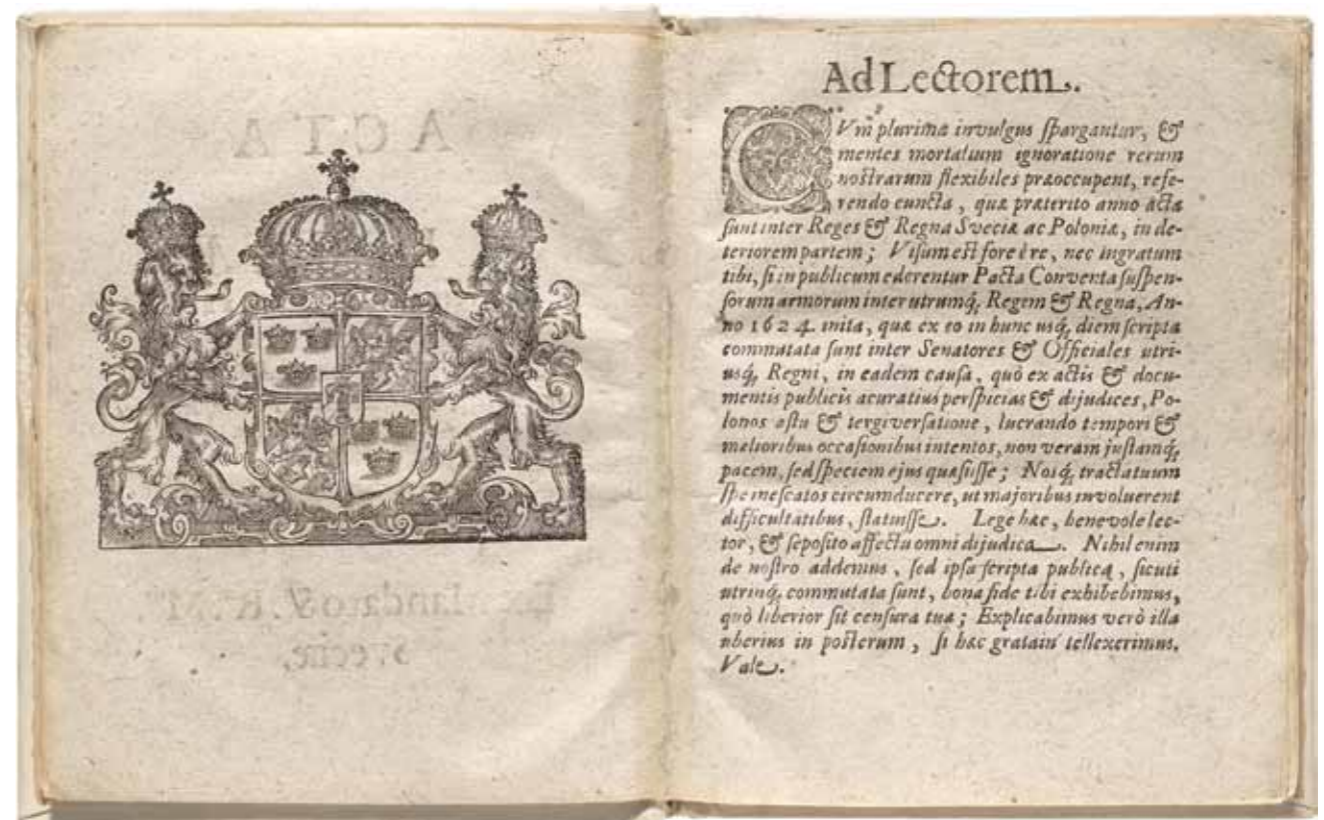 Ad Lectorem.
CVm plurima invulgus spargantur, &
mentes mortalium ignoratione rerum
nostrarum flexibiles præoccupent, refe-
rendo cuncta, quæ præterito anno acta
sunt inter Reges & Regna Sveciæ ac Poloniæ, in de-
teriorem partem; Visum est fore è re, nec ingratum
tibi, si in publicum ederentur Pacta Conventa suspen-
sorum armorum inter utrumq; Regem & Regna, An-
no 1624. inita, quæ ex eo in hunc usq; diem scripta
commutata sunt inter Senatores & Officiales utri-
usq; Regni, in eadem causa, quò ex actis & docu-
mentis publicis acuratius perspicias & dijudices, Po-
lonos astu & tergiversatione, lucrando tempori &
melioribus occasionibus intentos, non veram justamq;
pacem, sed speciem ejus quæsisse; Nosq; tractatuum
spe inescatos circumducere, ut majoribus involuerent
difficultatibus, statuisse. Lege hæc, benevole lec-
tor, & seposito affectu omni dijudica. Nihil enim
de nostro addemus, sed ipsa scripta publica, sicuti
utrinq; commutata sunt, bona fide tibi exhibebimus,
quò liberior sit censura tua; Explicabimus verò illa
uberius in posterum, si hæc grata in tellexerimus.
Vale.